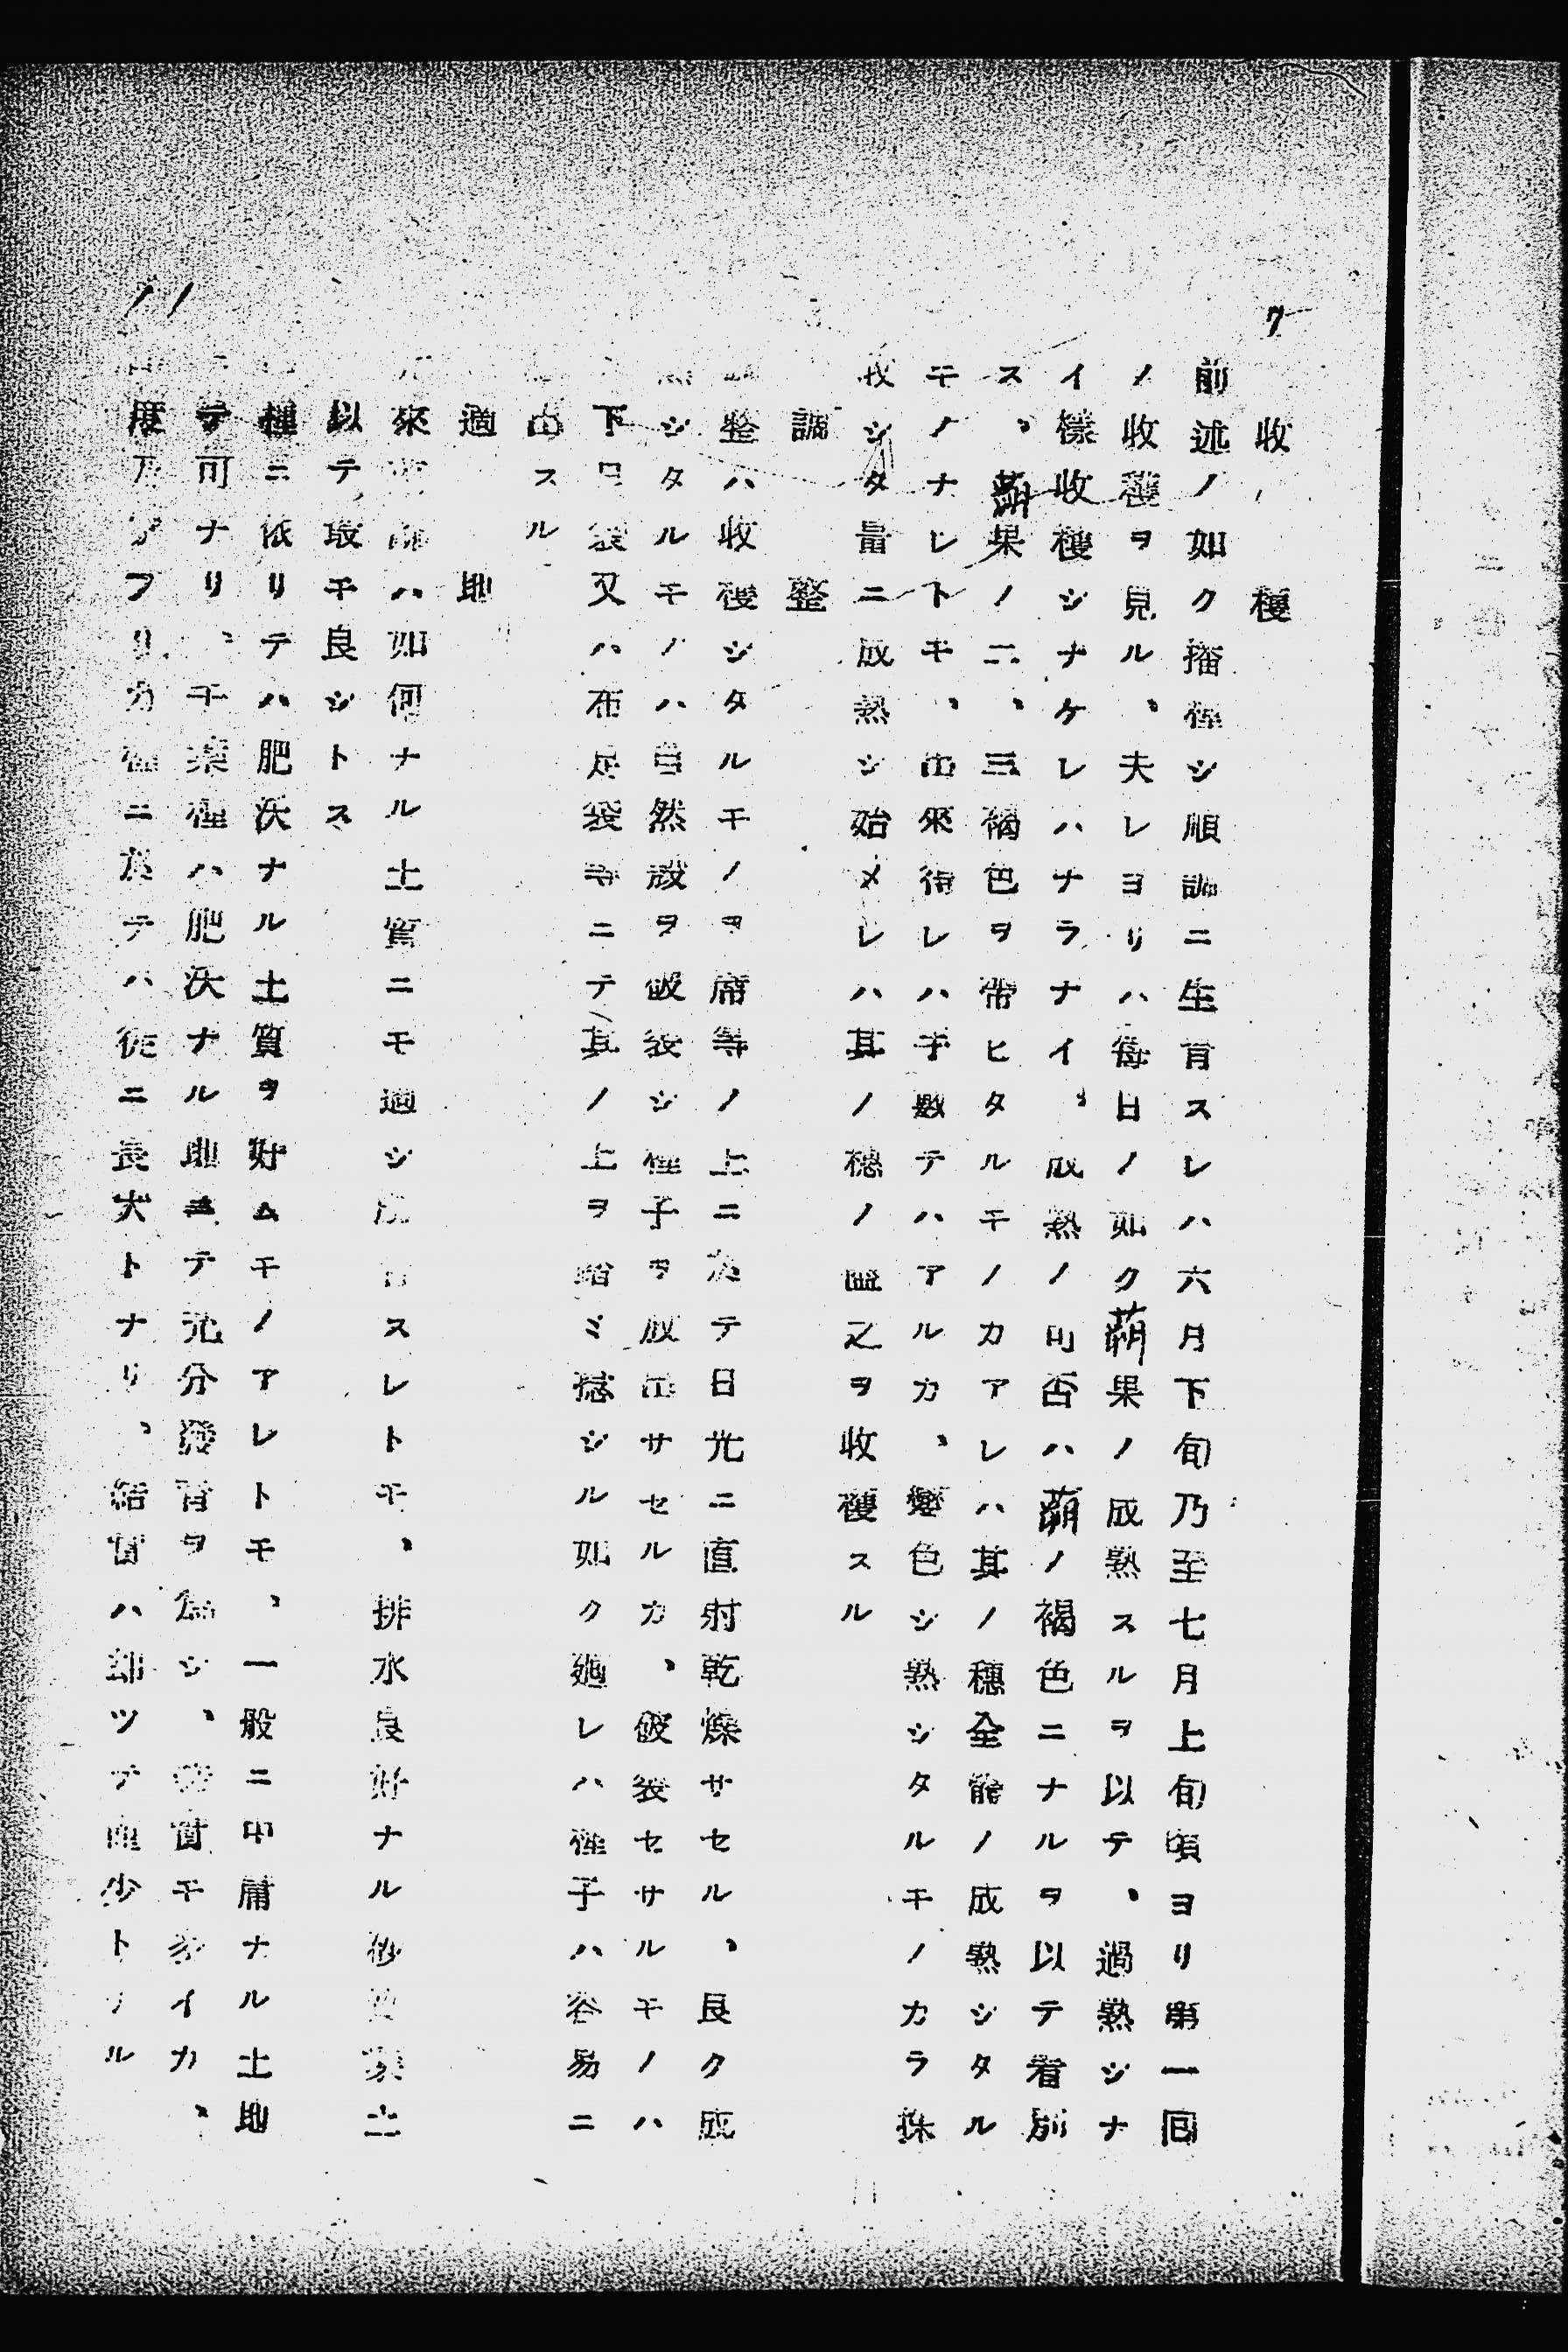 7
收穫
前述ノ如ク播種シ順調ニ生育スレハ六月下旬乃至七月上旬頃ヨリ第一囘
ノ收穫ヲ見ル、夫レヨリハ毎日ノ如ク蒴果ノ成熟スルヲ以テ、過熟シナ
イ樣收穫シナケレハナラナイ、成熟ノ可否ハ蒴ノ褐色ニナルヲ以テ看別
ス、蒴果ノ二、三褐色ヲ帶ヒタルモノカアレハ其ノ穗全能ノ成熟シタル
モノナレトモ、出來得レハ手數テハアルカ、變色シ熟シタルモノカラ採
收シタ量ニ成熟シ始メレハ其ノ穗ノ儘之ヲ收穫スル
調整
調整ハ收穫シタルモノヲ席等ノ上ニ於テ日光ニ直射乾燥サセル、良ク成
熟シタルモノハ自然殼ヲ破裂シ種子ヲ放出サセルカ、破裂セサルモノハ
下袋又ハ布足袋等ニテ其ノ上ヲ踏ミ揉シル如ク廻レハ種子ハ容易ニ
出スル
適地
元來ハ如何ナル土質ニモ適シスレトモ、排水良好ナル砂質壤土
以テ最モ良シトス
種ニ依リテハ肥沃ナル土質ヲ好ムモノアレトモ、一般ニ中庸ナル土地
テ可ナリ、千葉種ハ肥沃ナル地ニテ充分發育ヲ爲シ、結實モ多イカ、
度乃ブリカ種ニ於テハ徒ニ長大トナリ、結實ハ却ツテ減少トナル
11